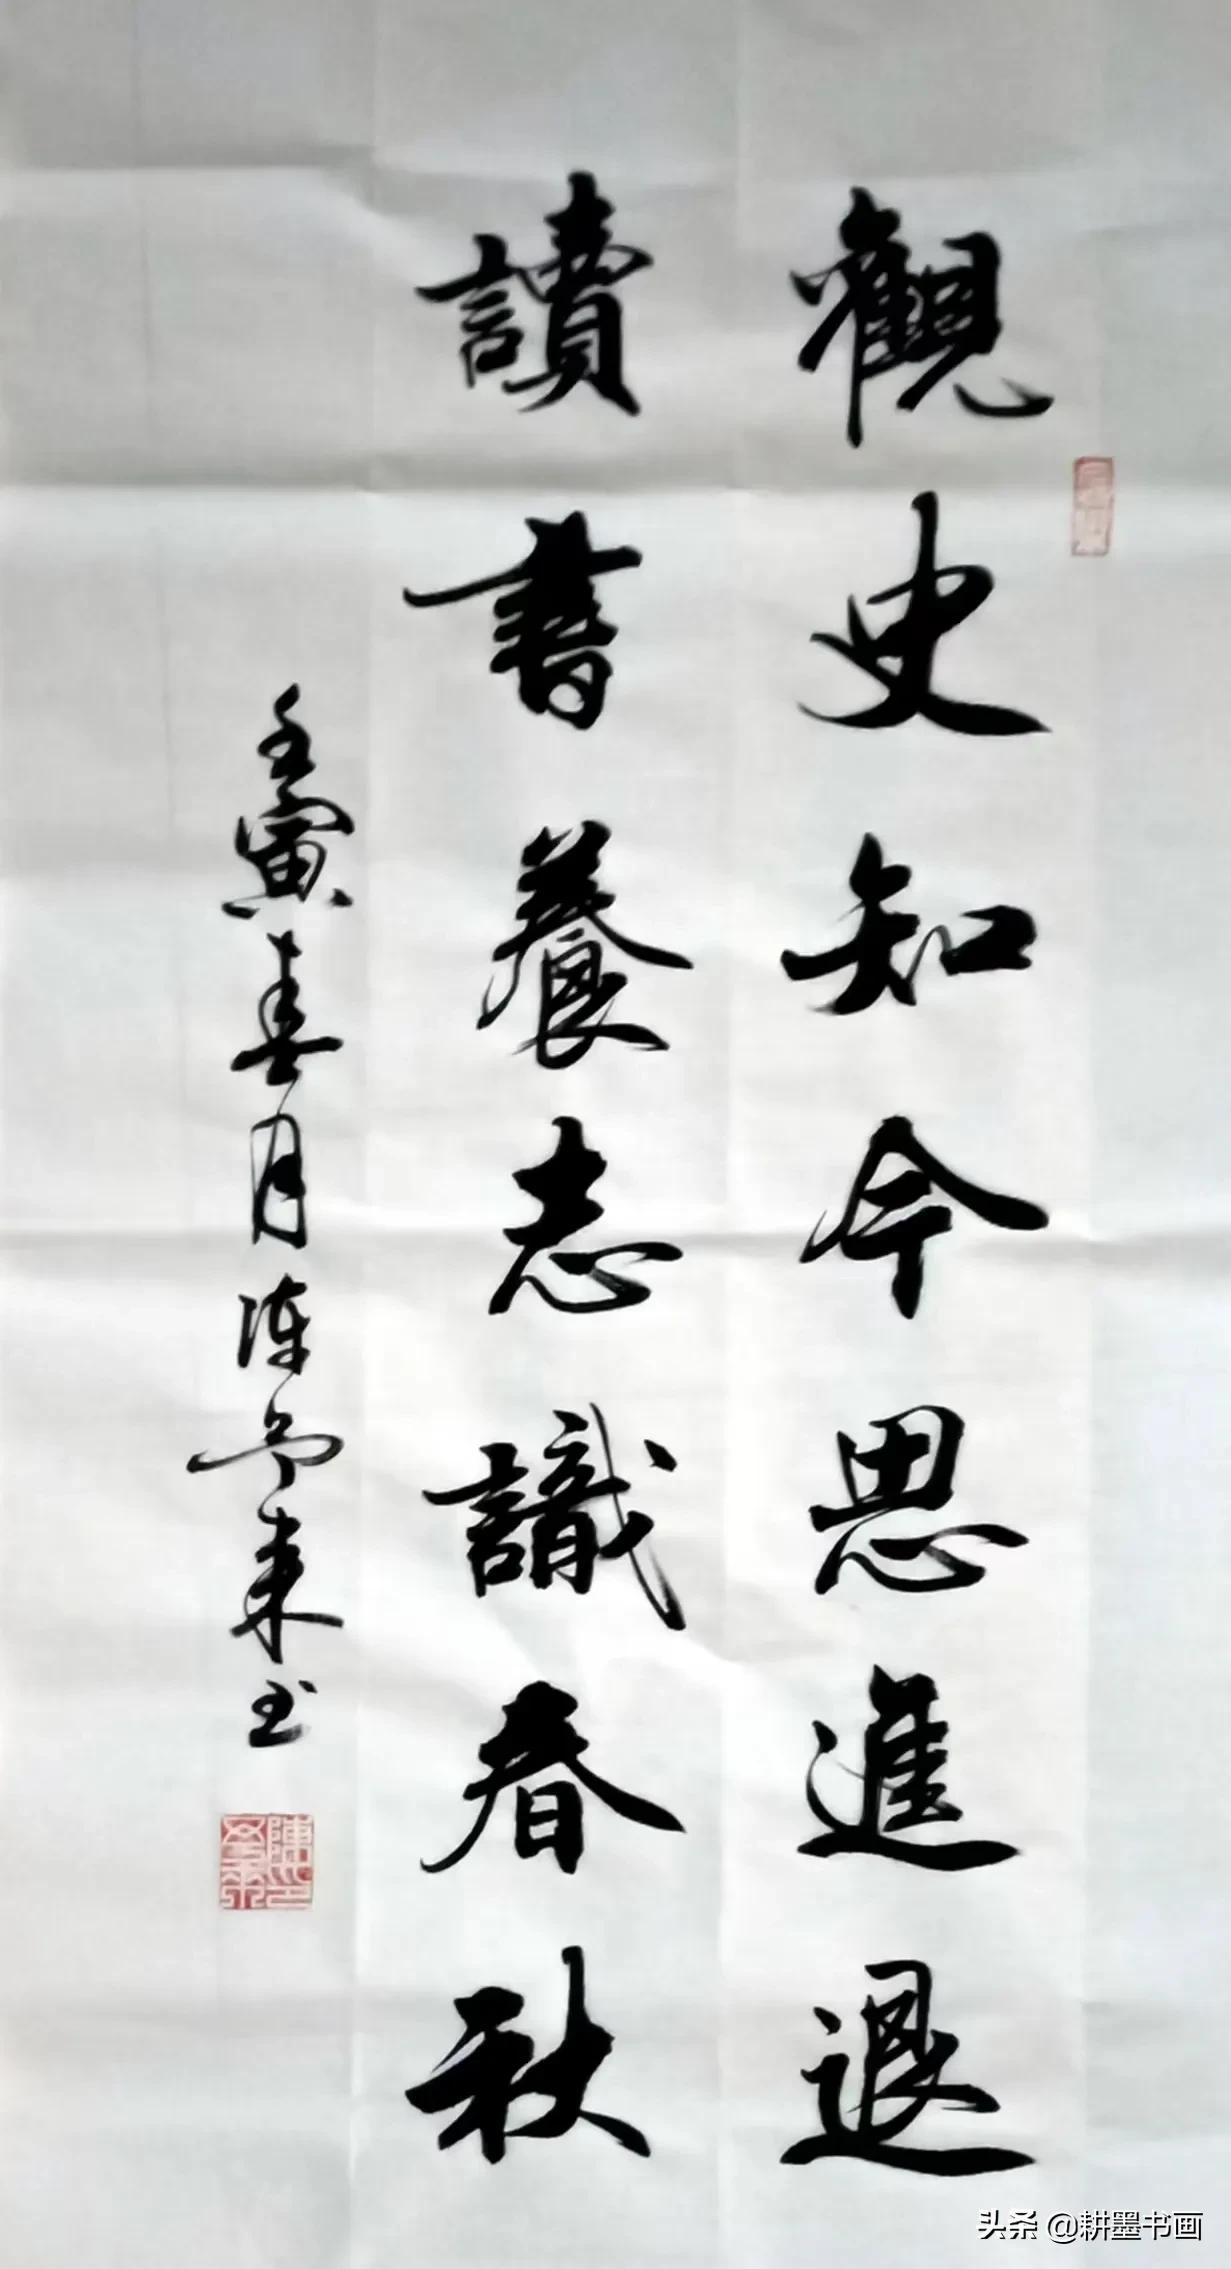 觀史知今思進退
讀書養志識春秋
壬寅春月陳予來书
頭条 @耕墨书画